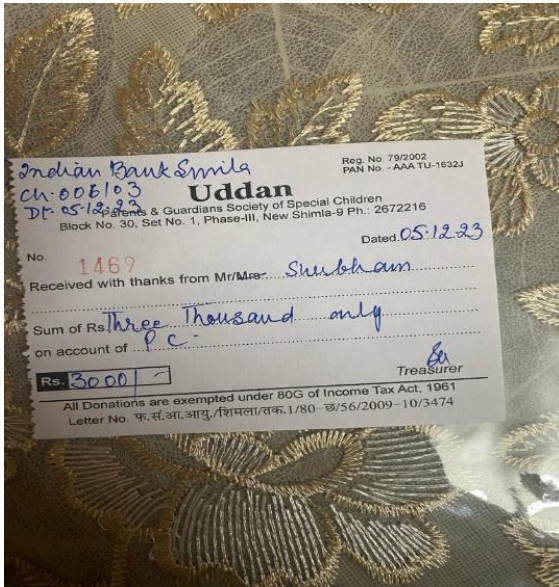 Indian Bank Smila
Ch. 006103
Dt. 05-12-23
Reg. No 79/2002
PAN No. - AAA TU-1632J
Uddan
Parents & Guardians Society of Special Children
Block No. 30, Set No. 1, Phase-III, New Shimla-9 Ph.: 2672216
Dated 05.12.23
No. 1469
Received with thanks from Mr/Mrs Shubham
Sum of Rs Three Thousand only
on account of P C.
Rs. 3000/-
Treasurer
All Donations are exempted under 80G of Income Tax Act, 1961
Letter No. फ.सं.आ.आयु./शिमला/तक.1/80-छ/56/2009-10/3474